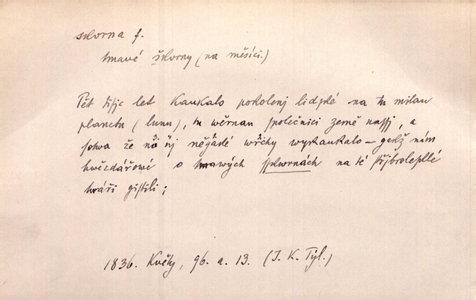 skvrna f.
tmavé škvrny (na měsíci.)
Pět tisjc let kaukalo pokolenj lidské na tu milau
planetu (lunu), tu wěrnau společnici země nassj, a
sotwa že na nj nějaké wrchy wykaukalo – gedž nám
hwězdářowé o tmawých sskwrnách na té střjbroleské
twáři gistili;
1836. Květy, 96. a. 13. (J. K. Tyl.)